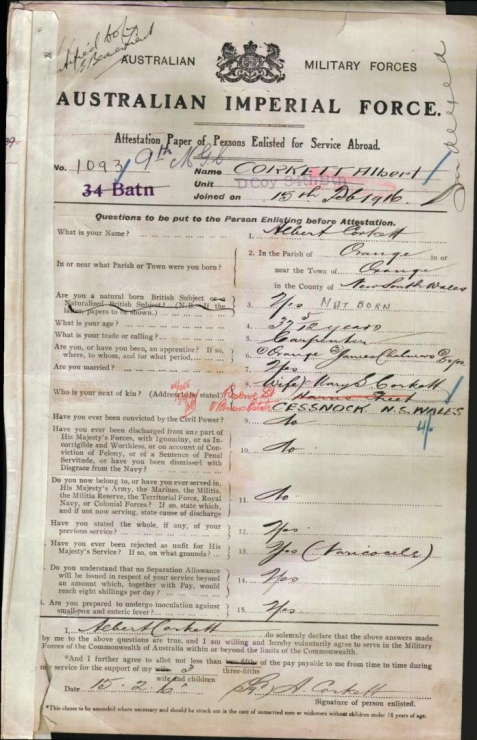 AUSTRALIAN MILITARY FORCES
AUSTRALIAN IMPERIAL FORCE.
Attestation Paper of Persons Enlisted for Service Abroad.
Indexed
No. 1093 Name CORKETT Albert
34 Batn Unit D Coy 34th Btn
Joined on 15th Feb 1916
Questions to be put to the Person Enlisting before Attestation.
What is your Name? 1. Albert Corkett
In or near what Parish or Town were you born? 2. In the Parish of Orange in or
near the Town of Orange
in the County of New South Wales
Are you a natural born British Subject or a Naturalized British Subject? (N.B.—If the latter, papers to be shown.) 3. Yes NAT BORN
What is your age? 4. 37 5/12 years
What is your trade or calling? 5. Carpenter
Are you, or have you been, an apprentice? If so, where, to whom, and for what period 6. Orange James Chalmers
Are you married? 7. Yes
Who is your next of kin? (Address to be stated) 8. (Wife) Mary S Corkett
CESSNOCK N.S. WALES
Have you ever been convicted by the Civil Power? 9. No
Have you ever been discharged from any part of
His Majesty's Forces, with Ignominy, or as In-
corrigible and Worthless, or on account of Con-
viction of Felony, or of a Sentence of Penal
Servitude, or have you been dismissed with
Disgrace from the Navy? 10. No
Do you now belong to, or have you ever served in,
His Majesty's Army, the Marines, the Militia,
the Militia Reserve, the Territorial Force, Royal
Navy, or Colonial Forces? If so, state which,
and if not now serving, state cause of discharge 11. No
Have you stated the whole, if any, of your
previous service? 12. Yes
Have you ever been rejected as unfit for His
Majesty's Service? If so, on what grounds? 13. Yes (Varicocele)
Do you understand that no Separation Allowance
will be issued in respect of your service beyond
an amount which, together with Pay, would
reach eight shillings per day? 14. Yes
Are you prepared to undergo inoculation against
small-pox and enteric fever? 15. Yes
I, Albert Corkett do solemnly declare that the above answers made
by me to the above questions are true, and I am willing and hereby voluntarily agree to serve in the Military
Forces of the Commonwealth of Australia within or beyond the limits of the Commonwealth.
*And I further agree to allot not less than two-fifths of the pay payable to me from time to time during
three-fifths
my service for the support of my wife
wife and children
Date 15.2.16 A Corkett
Signature of person enlisted.
*This clause to be amended where necessary and should be struck out in the case of unmarried men or widowers without children under 18 years of age.